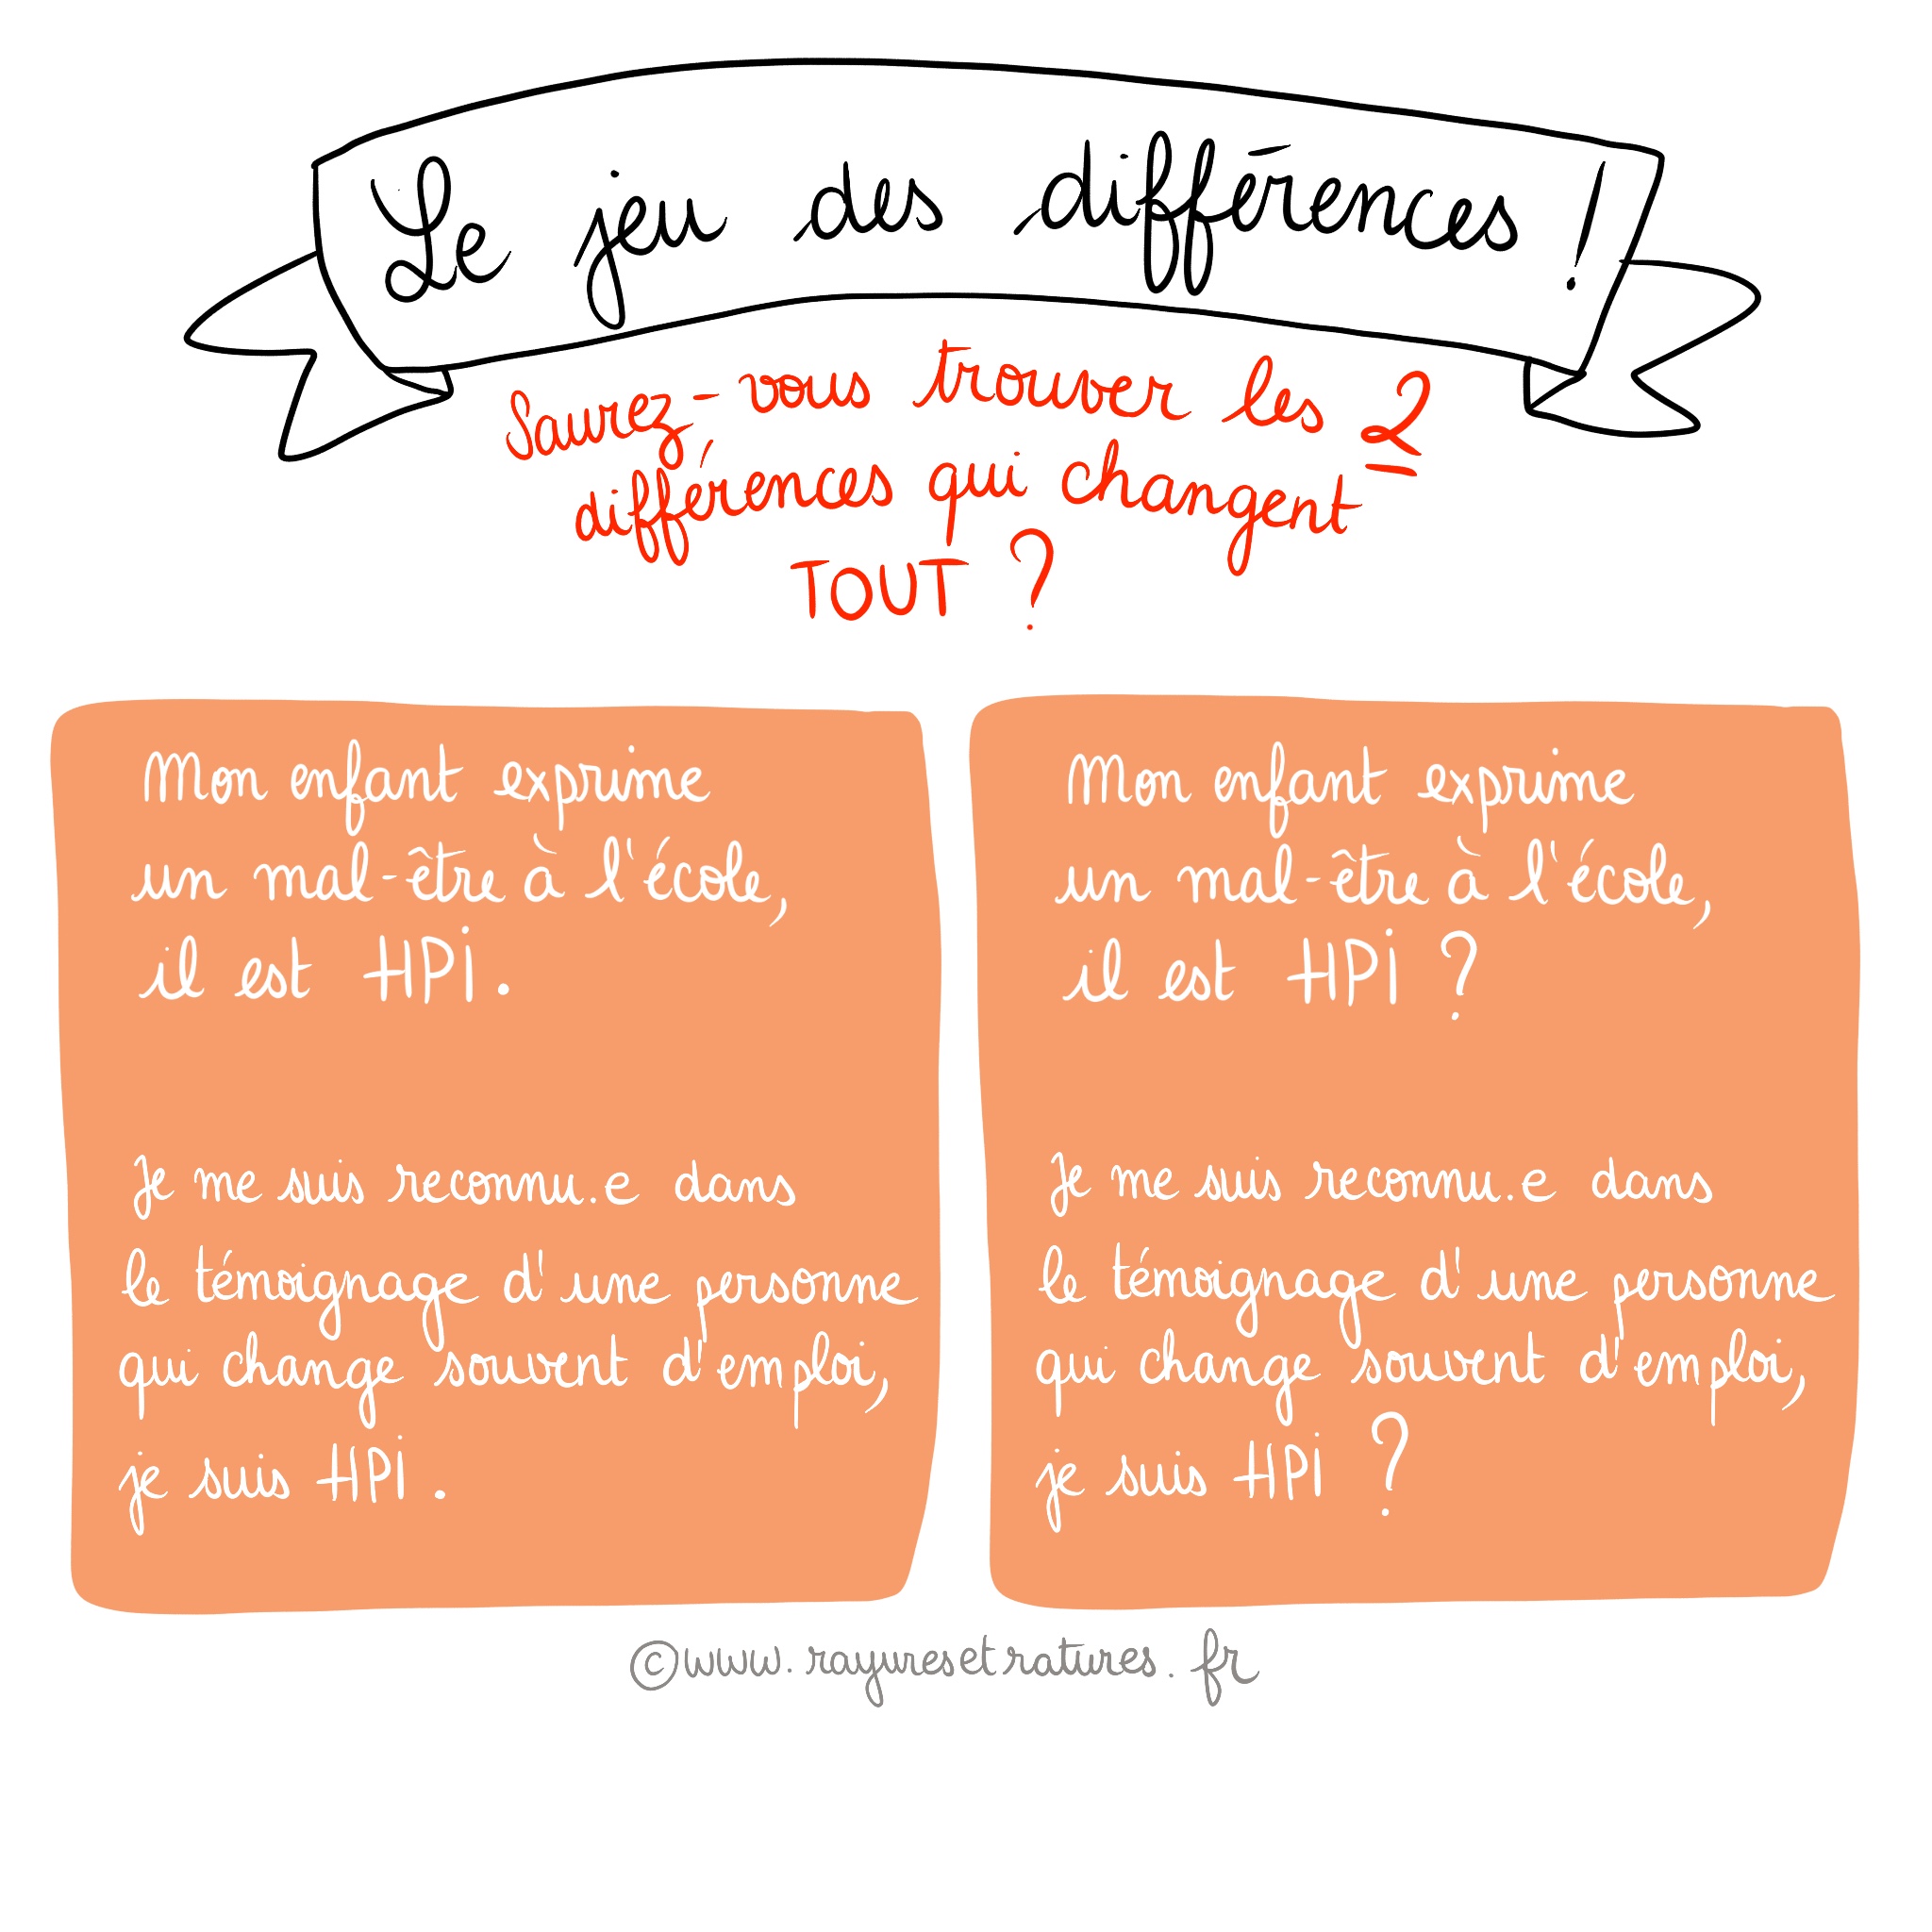 Le jeu des différences !
Saurez-vous trouver les 2
différences qui changent
TOUT ?
Mon enfant exprime
un mal-être à l'école,
il est HPi.
Je me suis reconnu.e dans
le témoignage d'une personne
qui change souvent d'emploi,
je suis HPi.
Mon enfant exprime
un mal-être à l'école,
il est HPi ?
Je me suis reconnu.e dans
le témoignage d'une personne
qui change souvent d'emploi,
je suis HPi ?
©www.rayuresetratures.fr